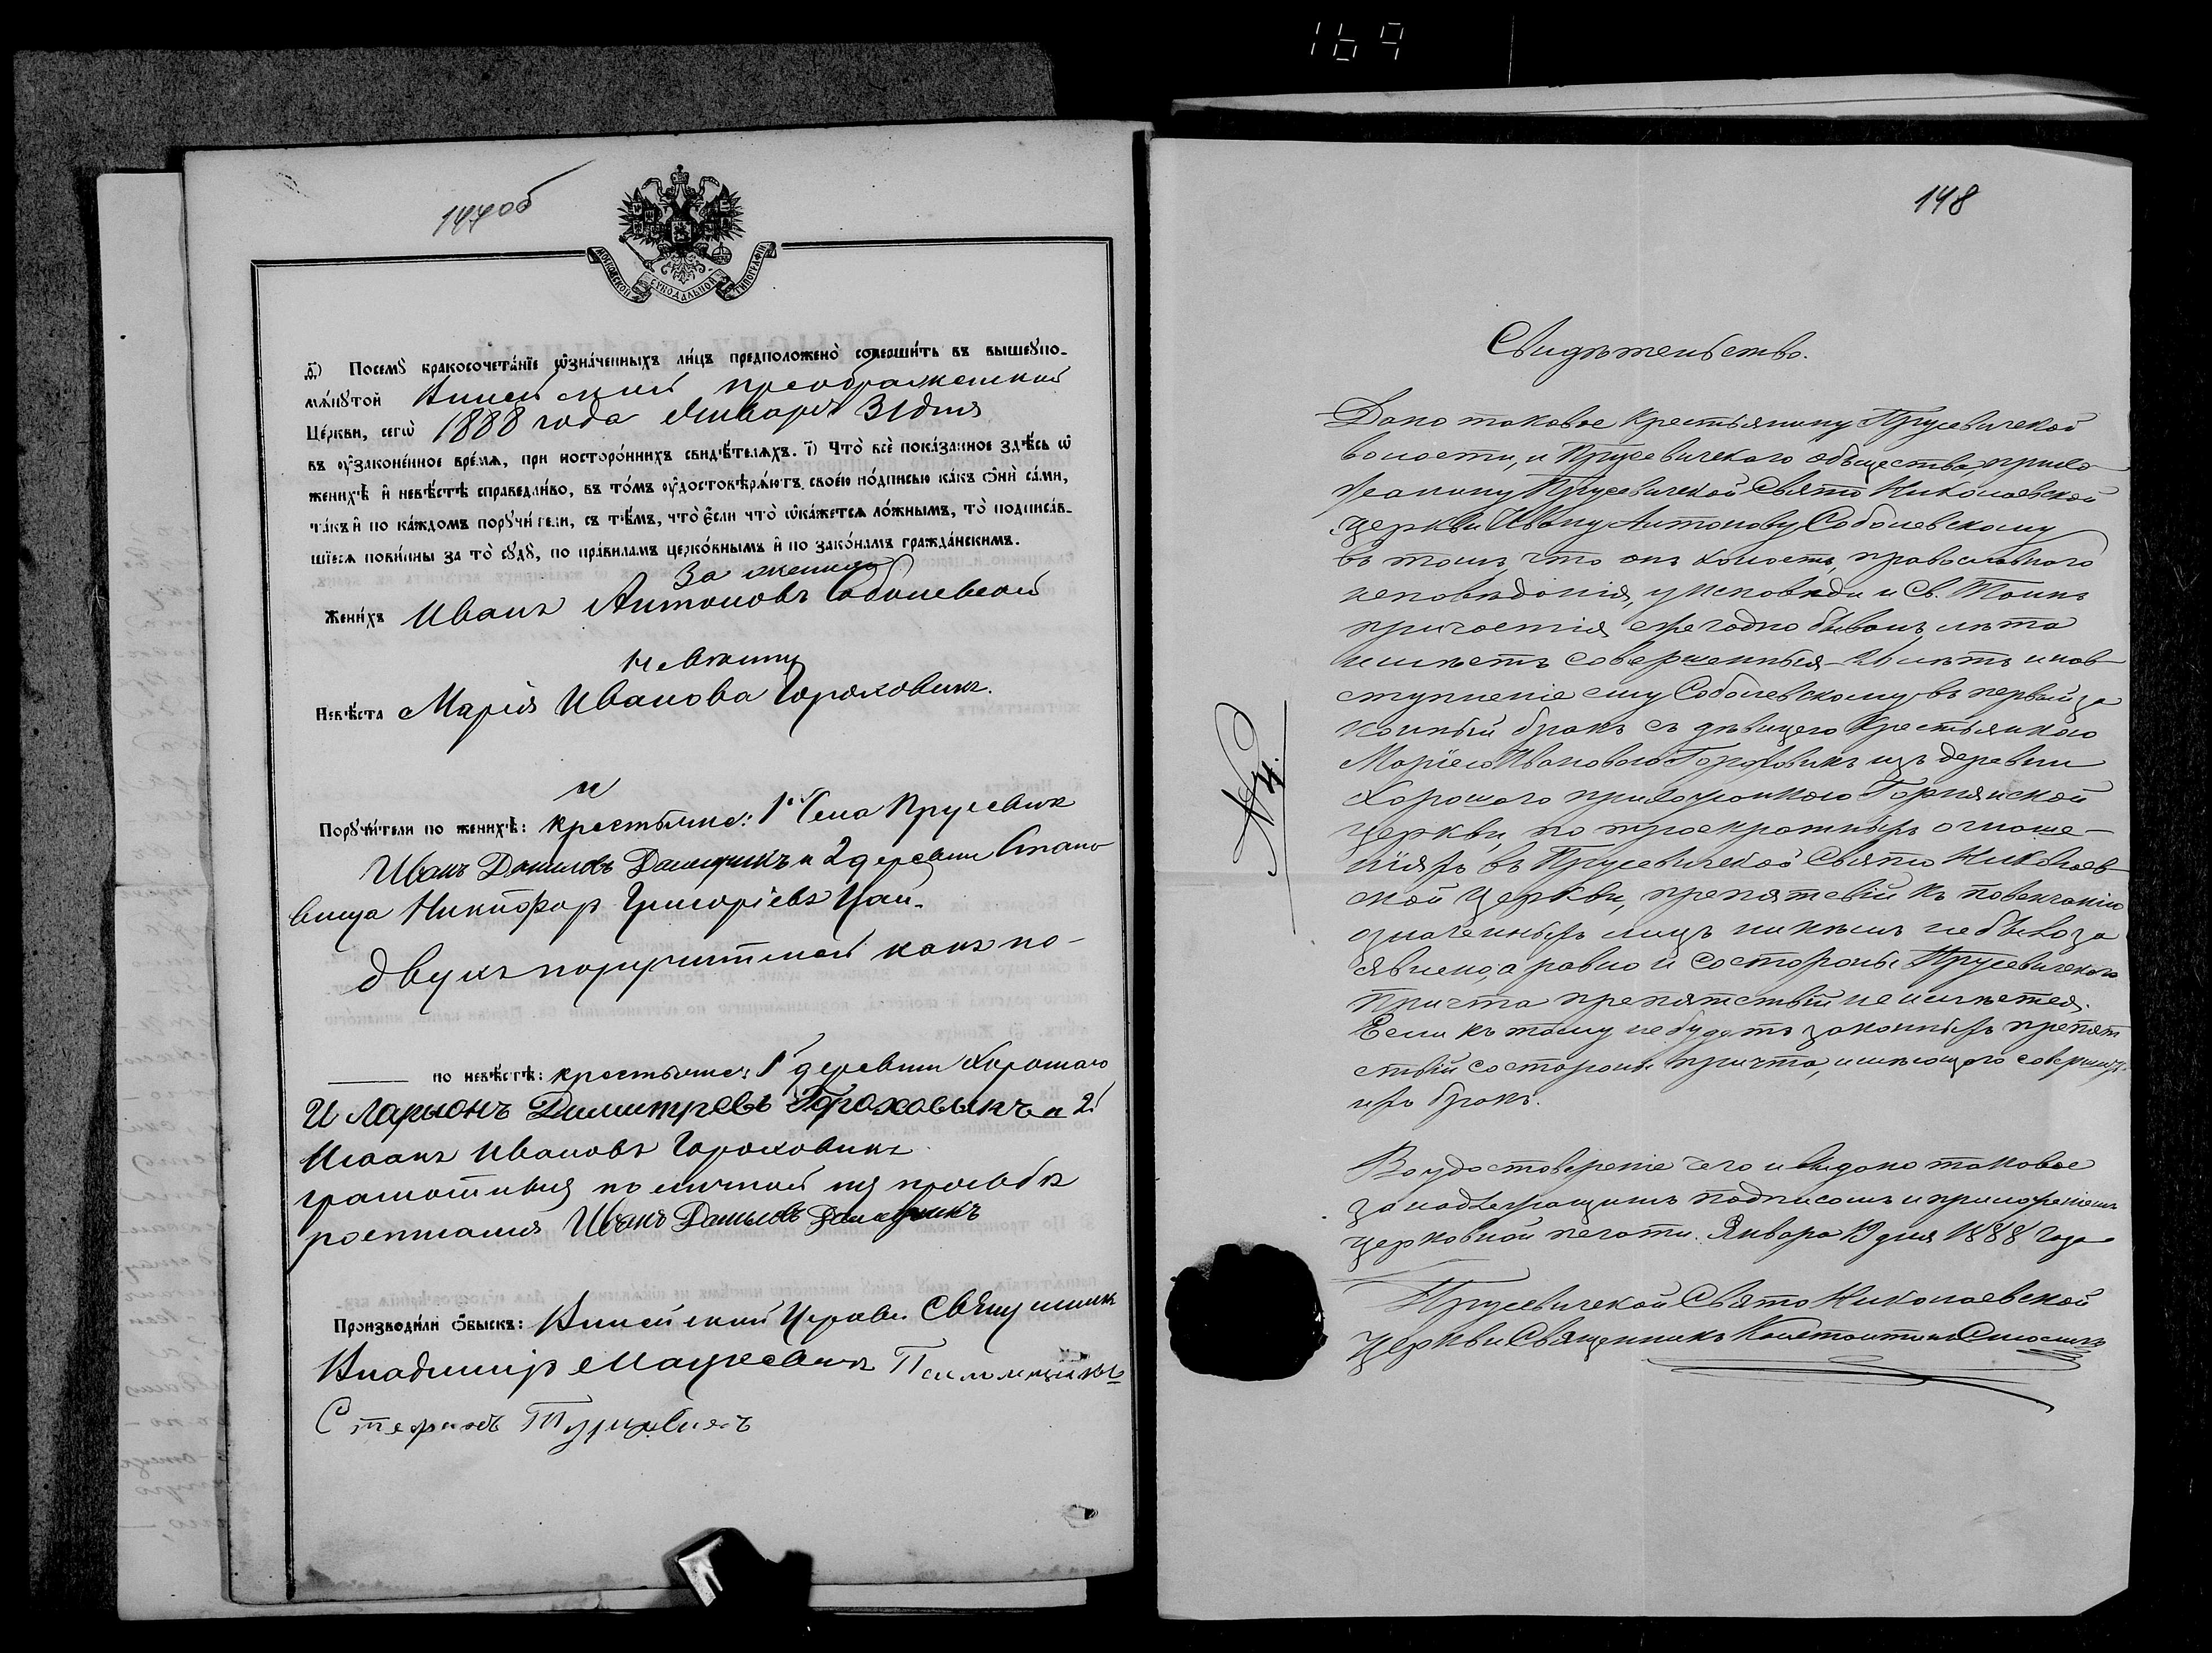 169
147об
МОСКОВСКОЙ СѴНОДАЛЬНОЙ ТИПОГРАФІИ
д҃) Посемꙋ бракосочета́нїе ѡ҆зна́ченныхъ ли́цъ предположено̀ соверши́ть въ вышеꙋпо-
мѧ́нꙋтой преображенской
Це́ркви, сегѡ̀ 1888 года Января 31 дня
въ ᲂу҆зако́ненное вре́мѧ, при посторо́ннихъ свидѣ́телѧхъ. і҃) Что̀ всѐ пока́занное здѣ́сь ѡ҆
женихѣ̀ и҆ невѣ́стѣ справедли́во, въ то́мъ ᲂу҆достовѣрѧ́ютъ свое́ю по́дписью ка́къ ѻ҆нѝ са́ми,
та́къ и҆ по ка́ждомъ порꙋчи́тели, съ тѣ́мъ, что̀ є҆́сли что̀ ѡ҆ка́жетсѧ ло́жнымъ, то̀ подписа́в-
шїесѧ пови́нны за то̀ сꙋдꙋ̀, по пра́виламъ церко́внымъ и҆ по зако́намъ гражда́нскимъ.
За жениха
Жени́хъ Иванъ Антоновъ Соболевский
Невесту
Невѣ́ста Марія Ивановa Гороховикъ.
и
Порꙋчи́тели по женихѣ̀: крестьяне: 1. Села Прусевичъ
Иванъ Даниловъ и 2 деревни Стано
вища Никифор Григоріевъ
двухъ поручителей какъ по-
по невѣ́стѣ: крестьяне: 1 деревни Хорошаго
Иларионъ Димитревъ Гороховикъ и 2.
Исаакъ Ивановъ Гороховикъ
грамотныя по личной их просьбѣ
росписался Иванъ Даниловъ
Производи́ли ѻ҆́быскъ: Церкви Священник
Владиміръ Мацкевичъ Псаломщикъ
Стефанъ
148
Свидѣтельство.
Дано таковое крестьянину Прусевичской
волости, и Прусевичскаго общества, прихо-
жанину Прусевичской Свято Николаевской
церкви Ивану Антонову Соболевскому
въ томъ, что онъ холостъ, православнаго
исповѣданія, у исповѣди и Св. Таинъ
причастія ежегодно бывалъ, лѣта
имѣетъ совершенныя лѣтъ и на в-
ступленіе ему Соболевскому въ первый за
конный бракъ съ дѣвицею крестьянкою
Маріею Ивановою Гороховикъ изъ деревни
Хорошаго прихожанкою
церкви, по троекратныхъ оглаше-
ніяхъ въ Прусевичской Свято Николаев-
ской церкви, препятствій къ повенчанію
означенныхъ лицъ никѣмъ не было за
явлено, а равно и со стороны Прусевичскаго
Причта препятствій не имѣется.
Если къ тому не будетъ законныхъ препят
ствій со стороны причта, имѣющаго совершить
ихъ бракъ.
№ 4.
Во удостоверѣніе чего и выдано таковое
за надлежащимъ подписомъ и приложеніемъ
церковной печати. Января 19 дня 1888 года
Прусевичской Свято Николаевской
церкви Священникъ Константинъ